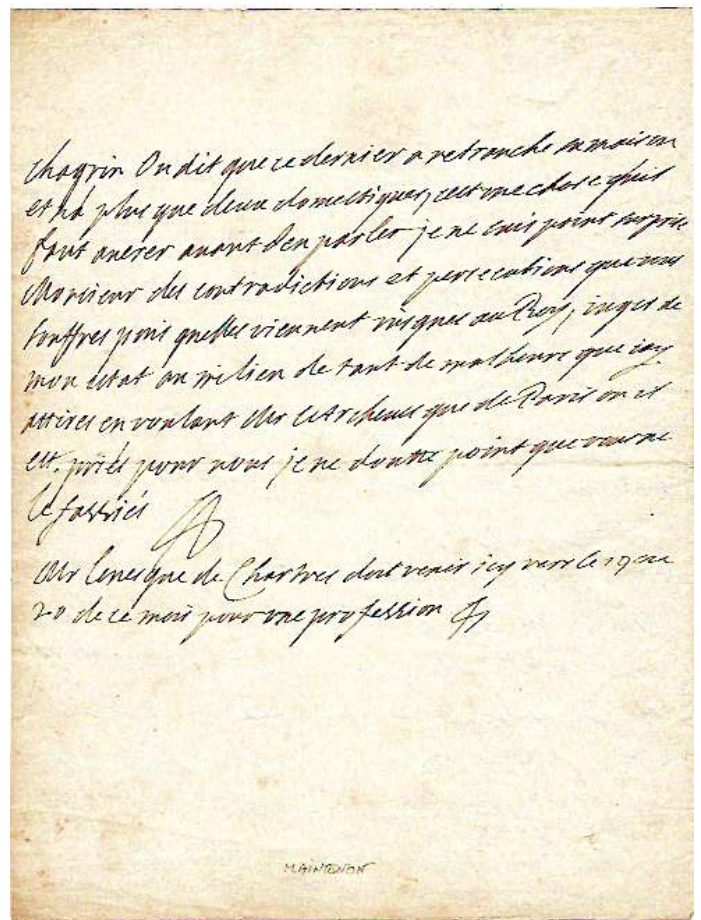 chagrin On dit que ce dernier a retranché sa maison
et na plus que deux domestiques, cest une chose quil
faut averer avant den parler je ne suis point surprise
Monsieur des contradictions et persecutions que vous
souffres puis quelles viennent jusques au Roy, juges de
mon estat au milieu de tant de malheurs que jay
attirés en voulant Mr larcheuesque de Paris ou il
est. priés pour nous je ne doutte point que vous ne
le fassiés
Mr leuesque de Chartres doit venir icy vers le 19 ou
20 de ce mois pour une profession
MAINTENON